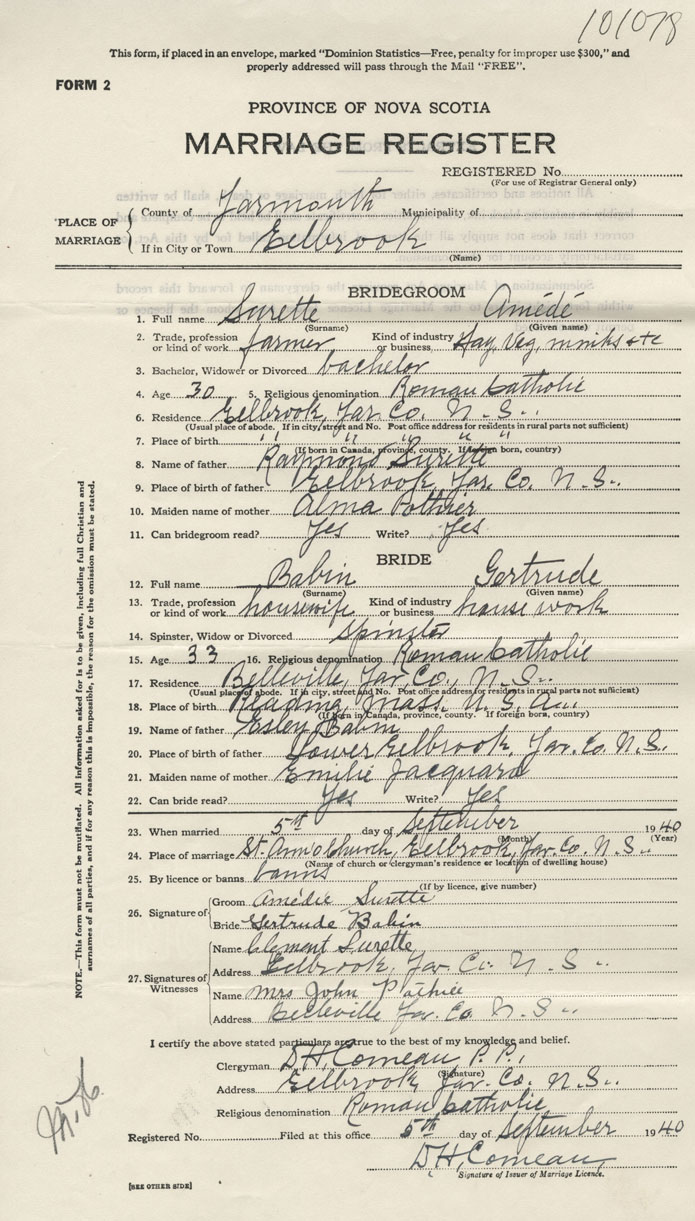 101078
This form, if placed in an envelope, marked "Dominion Statistics—Free, penalty for improper use $300," and
properly addressed will pass through the Mail "FREE".
FORM 2
PROVINCE OF NOVA SCOTIA
MARRIAGE REGISTER
REGISTERED No.
(For use of Registrar General only)
PLACE OF MARRIAGE
County of Yarmouth Municipality of
If in City or Town Eelbrook
(Name)
BRIDEGROOM
1. Full name Surette Amédé
(Surname) (Given name)
2. Trade, profession or kind of work farmer Kind of industry or business Hay, Veg, minks etc
3. Bachelor, Widower or Divorced bachelor
4. Age 30 5. Religious denomination Roman Catholic
6. Residence Eelbrook, Yar. Co. N.S.
(Usual place of abode. If in city, street and No. Post office address for residents in rural parts not sufficient)
7. Place of birth " " " " "
(If born in Canada, province, county. If foreign born, country)
8. Name of father Raymond Surette
9. Place of birth of father Eelbrook, Yar. Co. N.S.
10. Maiden name of mother Alma Pothier
11. Can bridegroom read? Yes Write? Yes
BRIDE
12. Full name Babin Gertrude
(Surname) (Given name)
13. Trade, profession or kind of work housewife Kind of industry or business house work
14. Spinster, Widow or Divorced Spinster
15. Age 33 16. Religious denomination Roman Catholic
17. Residence Belleville, Yar. Co., N.S.
(Usual place of abode. If in city, street and No. Post office address for residents in rural parts not sufficient)
18. Place of birth Reading, Mass. U.S.A.
(If born in Canada, province, county. If foreign born, country)
19. Name of father Babin
20. Place of birth of father Lower Eelbrook, Yar. Co. N.S.
21. Maiden name of mother Emilie Jacquard
22. Can bride read? Yes Write? Yes
23. When married 5th day of September 1940
(Month) (Year)
24. Place of marriage St. Church, Eelbrook, Yar. Co. N.S.
(Name of church or clergyman's residence or location of dwelling house)
25. By licence or banns banns
(If by licence, give number)
26. Signature of
Groom Amédée Surette
Bride Gertrude Babin
27. Signatures of Witnesses
Name Clement Surette
Address Eelbrook, Yar. Co. N.S.
Name Mrs John
Address Belleville Yar. Co. N.S.
I certify the above stated particulars are true to the best of my knowledge and belief.
Clergyman D.H. Comeau P.P.
(Signature)
Address Eelbrook Yar. Co. N.S.
Religious denomination Roman Catholic
Registered No. Filed at this office 5th day of September 1940
D.H. Comeau
Signature of Issuer of Marriage Licence.
[SEE OTHER SIDE]
NOTE.—This form must not be mutilated. All information asked for is to be given, including full Christian and
surnames of all parties, and if for any reason this is impossible, the reason for the omission must be stated.